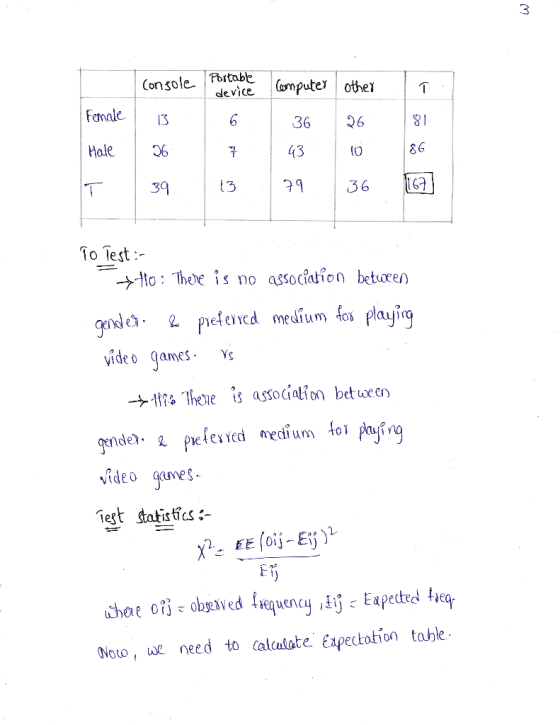 3
Console Portable device Computer other T
Female 13 6 36 26 81
Male 26 7 43 10 86
T 39 13 79 36 167
To Test :-
→ Ho : There is no association between
gender. & preferred medium for playing
video games. vs
→ H1: There is association between
gender. & preferred medium for playing
video games.
Test statistics :-
χ² = ΣΣ (Oij - Eij)²
Eij
where Oij = observed frequency , Eij = Expected freq.
Now, we need to calculate Expectation table.